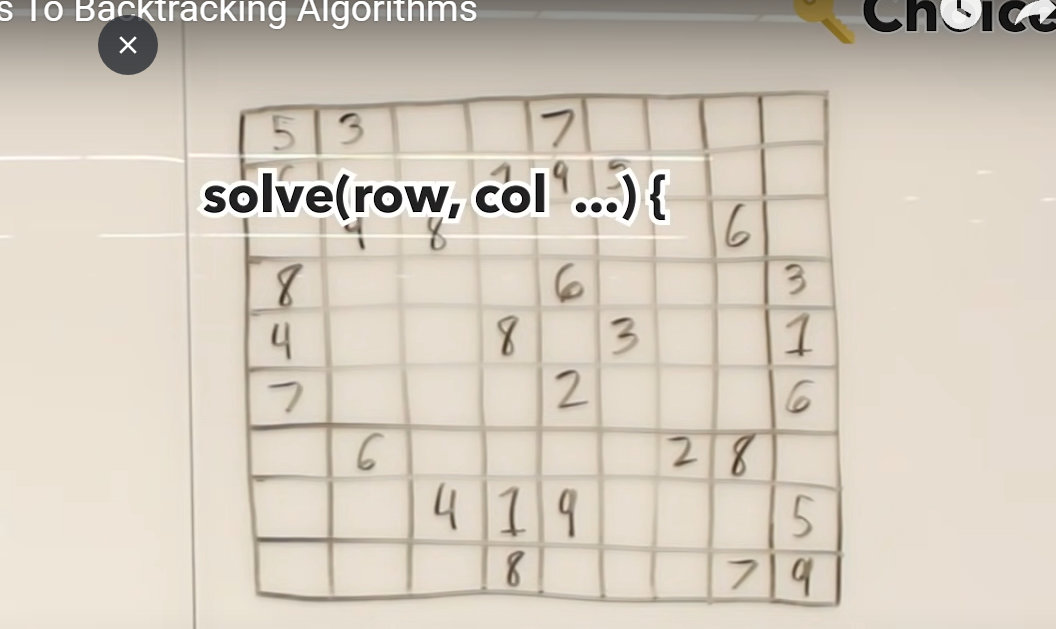 s To Backtracking Algorithms
Choice
5 3 7
1 9 5
solve(row, col ...) {
9 8 6
8 6 3
4 8 3 1
7 2 6
6 2 8
4 1 9 5
8 7 9